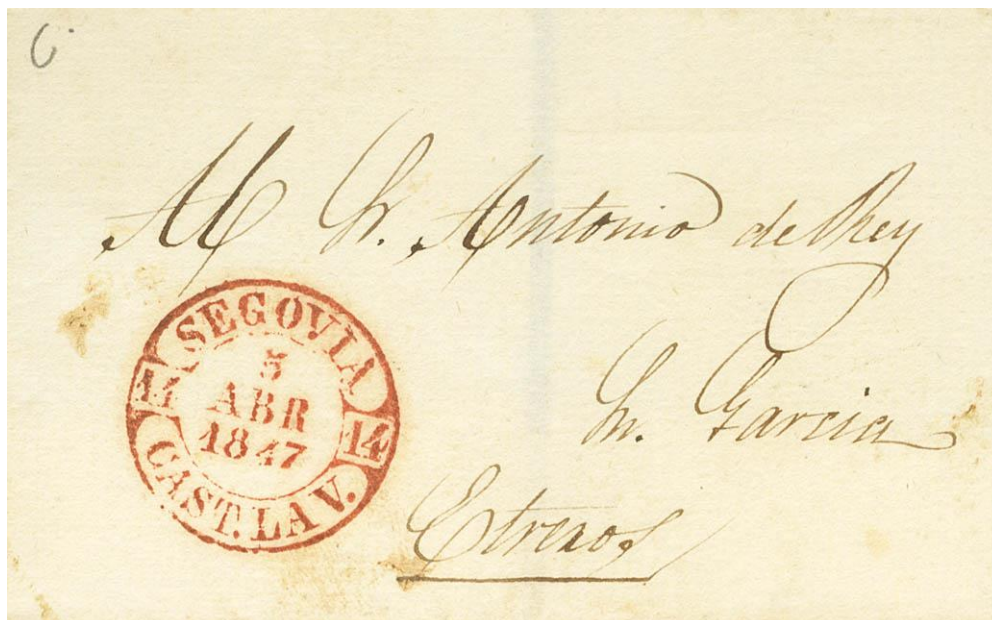 Al Sr. Antonio de Rey
Sn. Garcia
Etreros
SEGOVIA
14 14
5
ABR
1847
CAST. LA V.